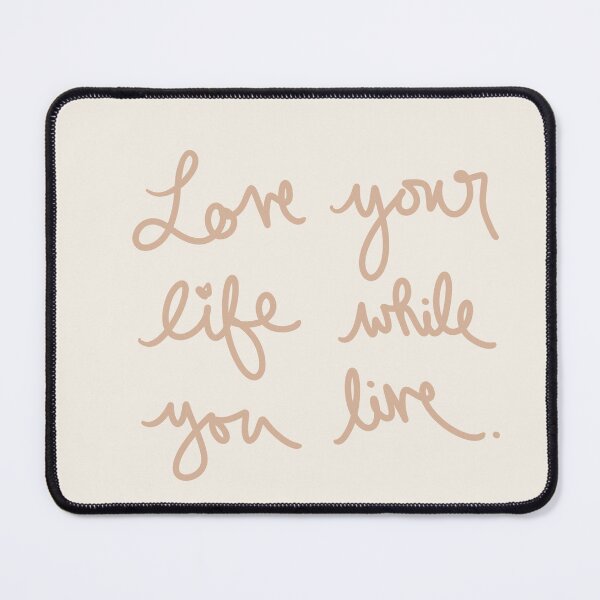 Love your
life while
you live.